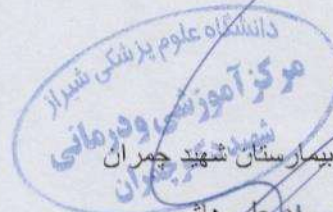 دانشگاه علوم پزشکی شیراز
مرکز آموزشی و درمانی
شهید دکتر چمران
بیمارستان شهید چمران